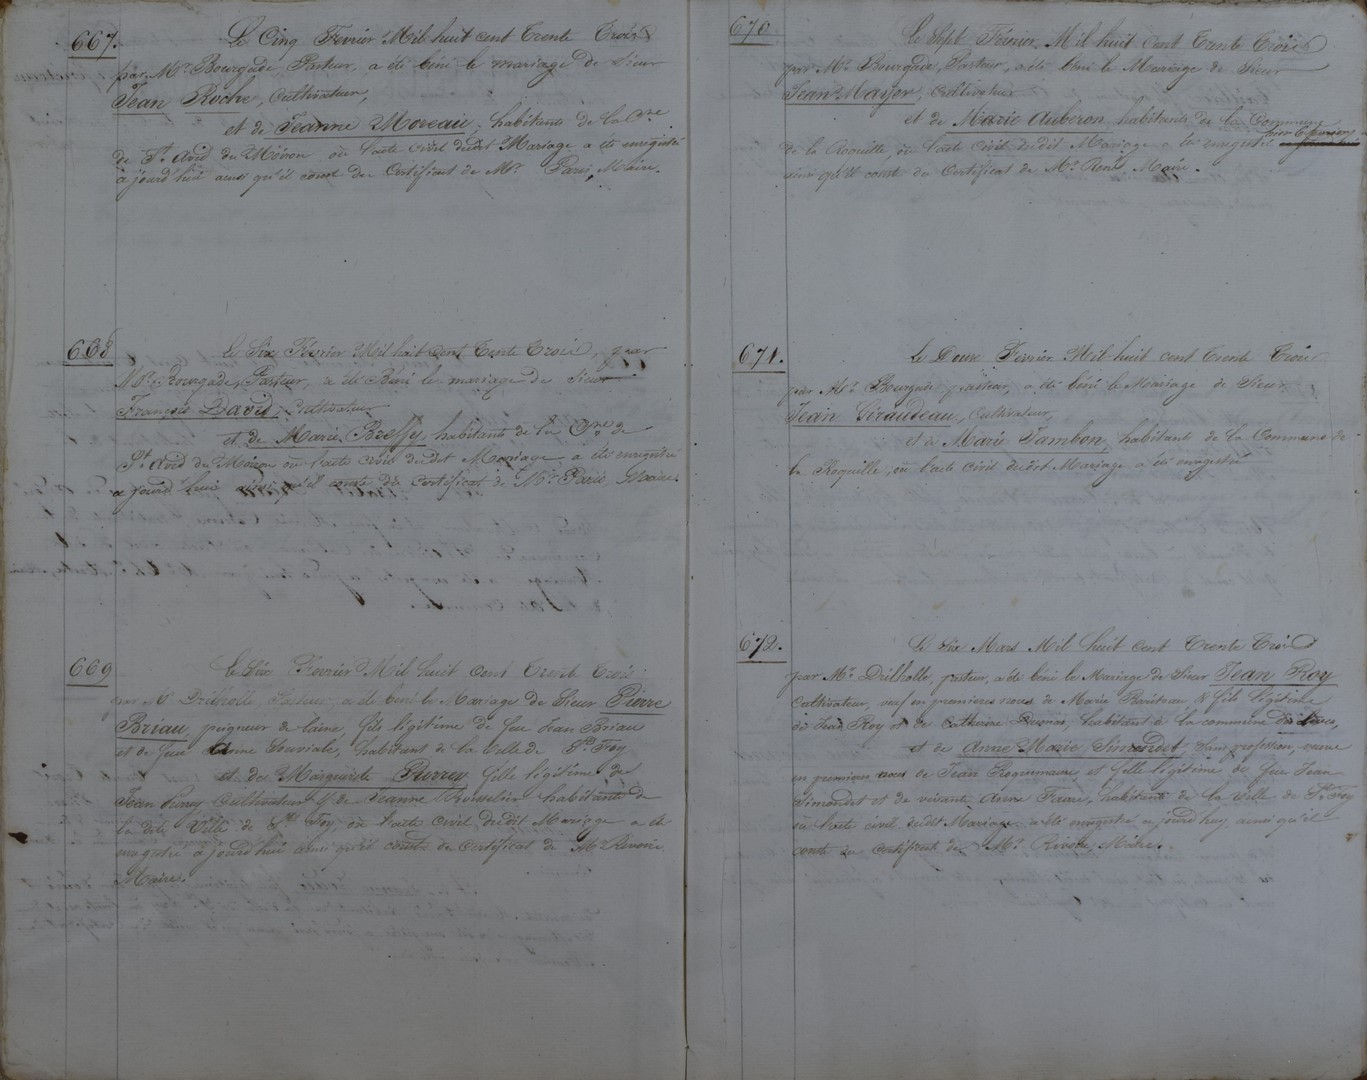 667.
Le Cinq Fevrier Mil huit cent Trente Trois
par Mr. Bourgade, Pasteur, a été béni le mariage de Sieur
Jean Roche, Cultivateur,
et de Jeanne Moreau, habitants de la Cne
de St. Avid du Moiron où l'acte civil dudit Mariage a été enregistré
a jourd'hui ainsi qu'il conste du Certificat de Mr. Paris, Maire.
668
Le Six Février Mil huit cent Trente Trois, par
Mr. Bourgade, Pasteur, a été Béni le mariage de Sieur
François David, Cultivateur
et de Marie habitants de la Cne de
St. Avid du Moiron où l'acte civil dudit Mariage a été enregistré
a jourd'hui ainsi qu'il conste du certificat de Mr. Paris, Maire.
669
Le Six Fevrier Mil huit cent Trente Trois
par Mr Drilholle Pasteur, a été béni le Mariage de Sieur Pierre
Briau, peigneur de laine, fils légitime de feu Jean Briau
et de feue Anne Souviale, habitant de la Ville de Ste. Foy
et de Marguerite fille légitime de
Jean Cultivateur & de Jeanne habitante de
la dite Ville de Ste. Foy, où l'acte civil dudit Mariage a été
enregistré a jourd'hui ainsi qu'il conste du certificat de Mr.
Maire.
670
Le Sept Février Mil huit Cent Trente Trois
par Mr. Bourgade, Pasteur, a été béni le Mariage de Sieur
Jean Mayer, Cultivateur
et de Marie Auberon, habitants de la Commune
de la Roquille, où l'acte Civil dudit Mariage a été enregistré
ainsi qu'il conste du Certificat de Mr. René Maire.
671.
Le Douze Fevrier Mil huit cent Trente Trois
par Mr. Bourgade, pasteur, a été béni le Mariage de Sieur
Jean Géraudeau, Cultivateur,
et de Marie Jambon, habitants de la Commune de
la Roquille, où l'acte civil dudit Mariage a été enregistré
672.
Le Six Mars Mil huit cent Trente Trois
par Mr. Drilholle, pasteur, a été béni le Mariage de Sieur Jean Roy
Cultivateur, veuf en premieres noces de Marie & fils légitime
de Jean Roy et de Catherine habitant à la commune
et de Anne Marie Simondet, sans profession, veuve
en premières noces de Jean et fille légitime de feu Jean
Simondet et de vivante Anne habitante de la Ville de Ste. Foy
où l'acte civil dudit Mariage a été enregistré a jourd'huy ainsi qu'il
conste du certificat de Mr. Maire.